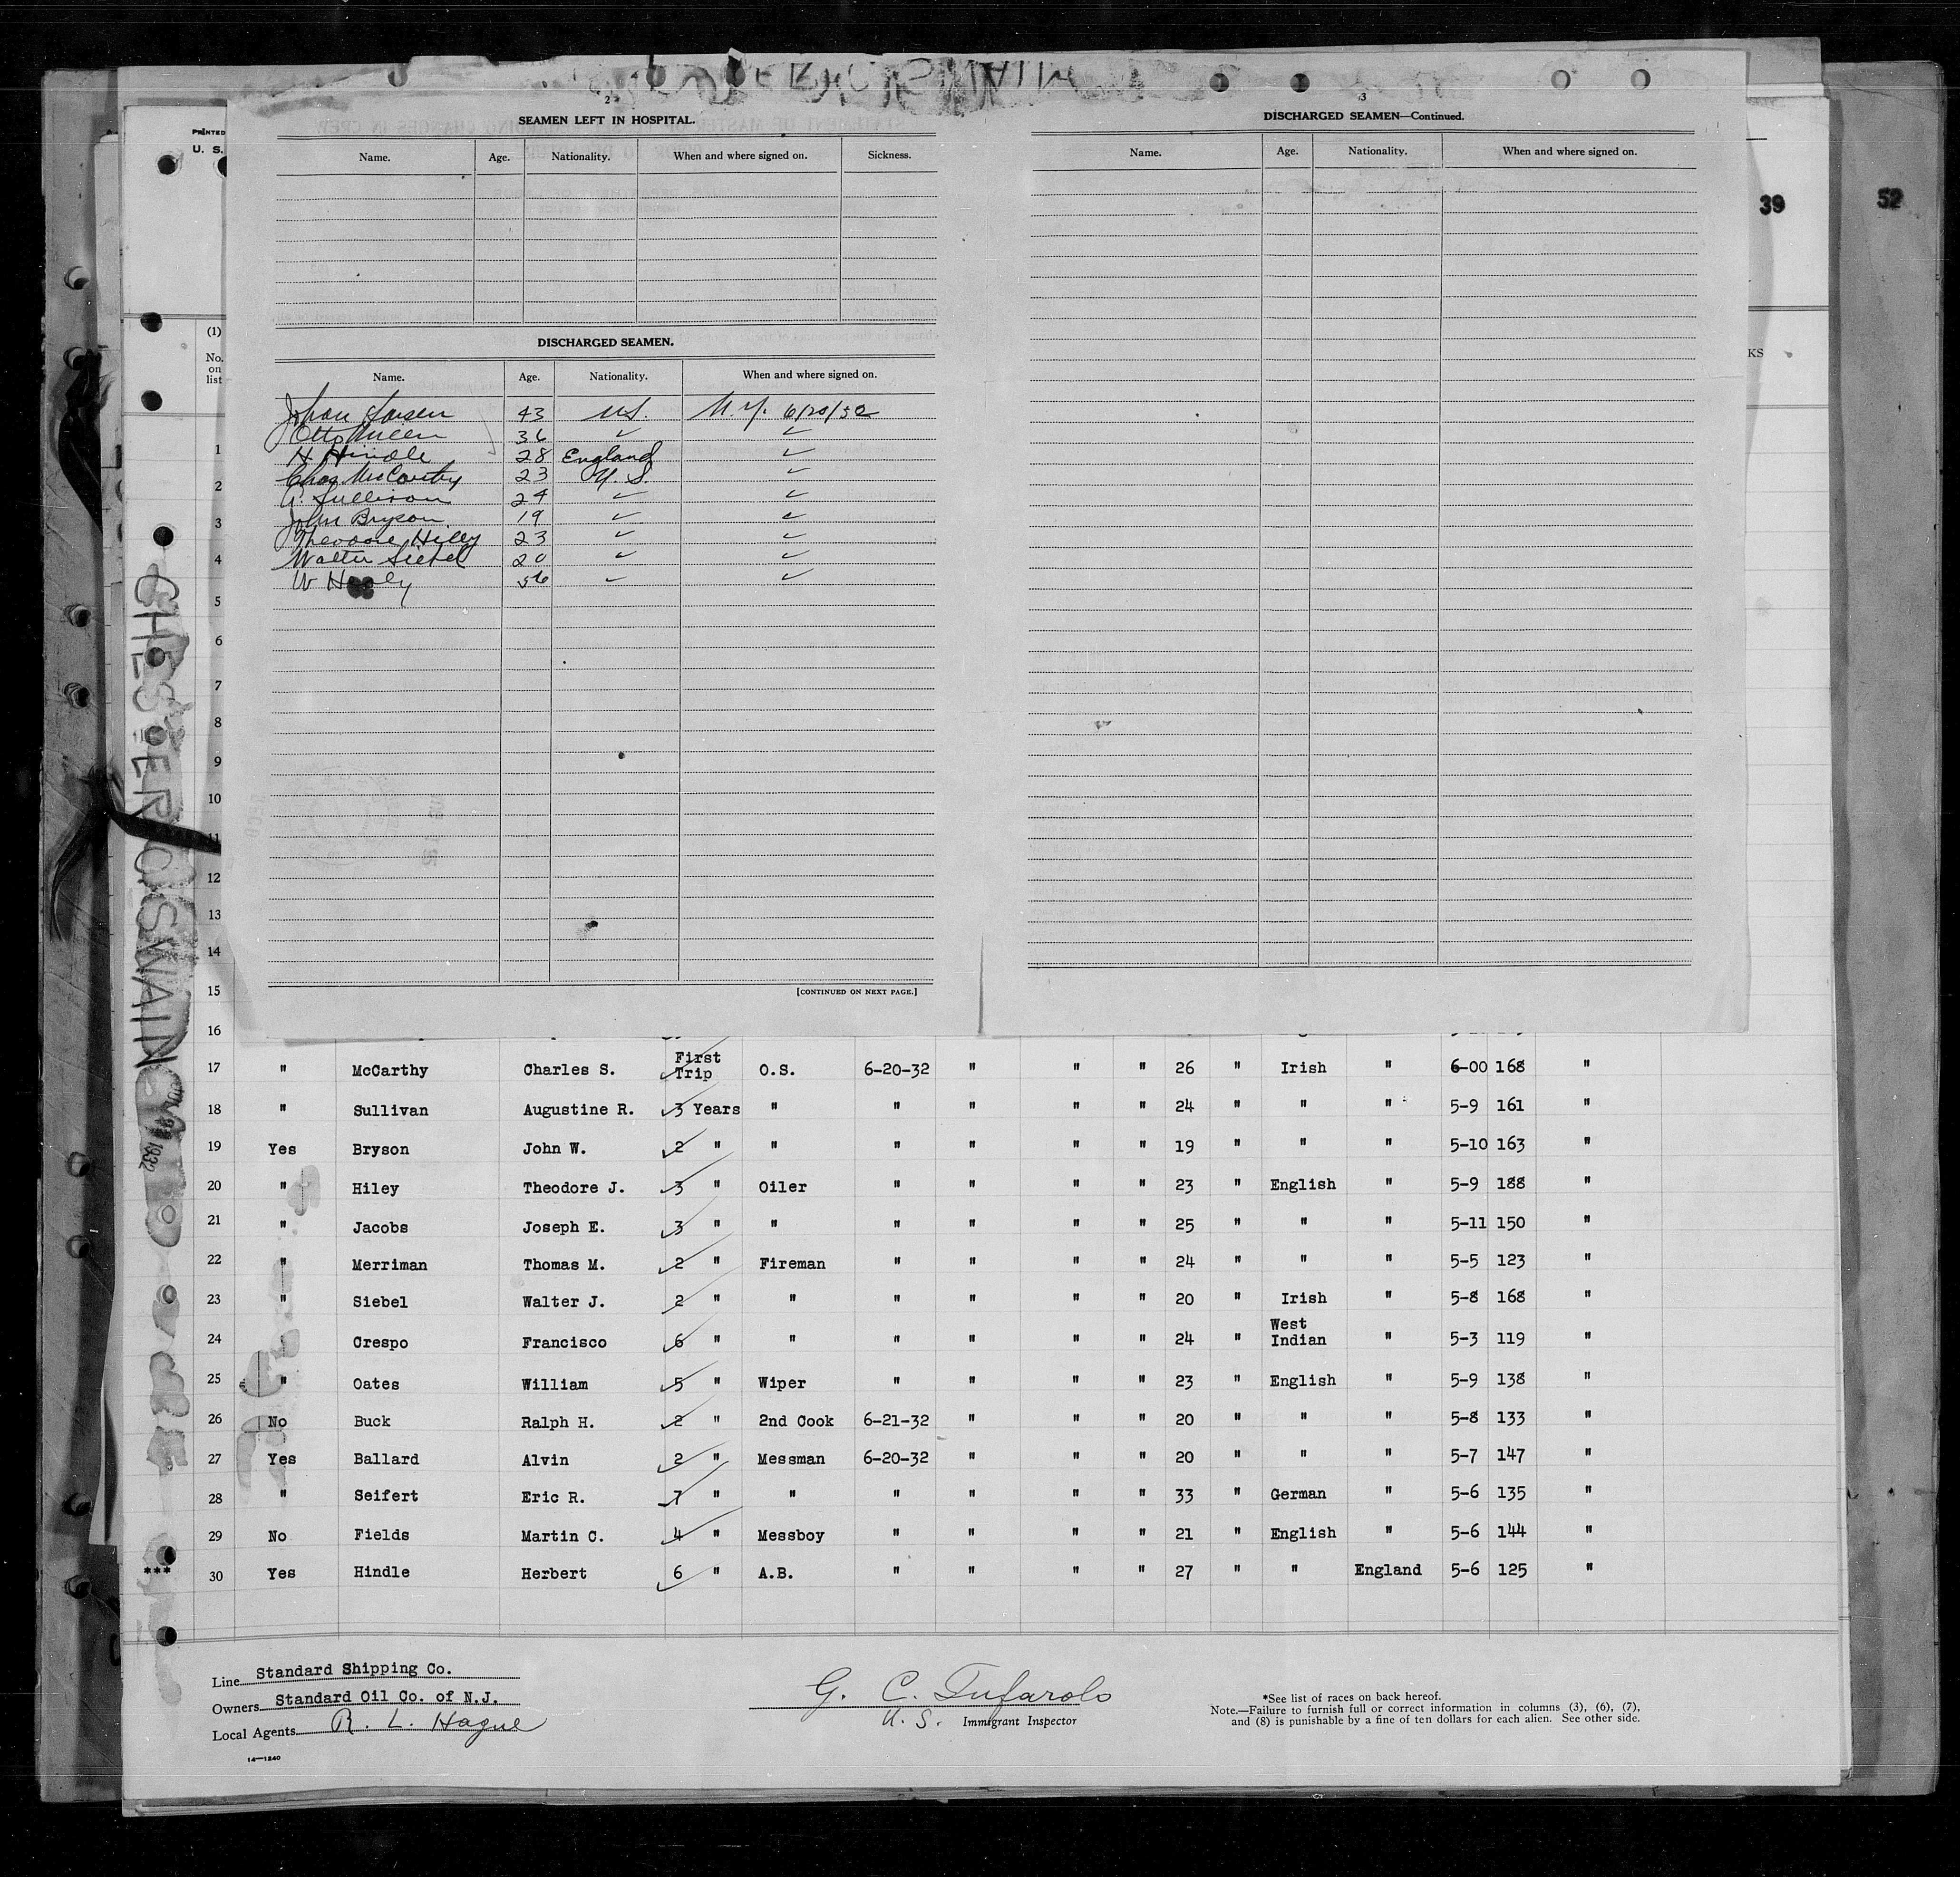 2
SEAMEN LEFT IN HOSPITAL.
Name. Age. Nationality. When and where signed on. Sickness.
DISCHARGED SEAMEN.
Name. Age. Nationality. When and where signed on.
43 U.S. N.Y. 6/20/32
Otto 36 ✓ ✓
H Hindle 28 England ✓
Chas McCarthy 23 U.S. ✓
A. Sullivan 24 ✓ ✓
John Bryson 19 ✓ ✓
Theodore Hiley 23 ✓ ✓
Walter Siebel 20 ✓ ✓
W Healy 56 ✓ ✓
[CONTINUED ON NEXT PAGE.]
3
DISCHARGED SEAMEN—Continued.
Name. Age. Nationality. When and where signed on.
PRINTED
U. S.
39
52
KS
(1)
No.
on
list
1
2
3
4
5
6
7
8
9
10
11
12
13
14
15
16
CHESTER O SWAIN
1932
17 " McCarthy Charles S. First Trip O.S. 6-20-32 " " " 26 " Irish " 6-00 168 "
18 " Sullivan Augustine R. 3 Years " " " " " 24 " " " 5-9 161 "
19 Yes Bryson John W. 2 " " " " " " 19 " " " 5-10 163 "
20 " Hiley Theodore J. 3 " Oiler " " " " 23 " English " 5-9 188 "
21 " Jacobs Joseph E. 3 " " " " " " 25 " " " 5-11 150 "
22 " Merriman Thomas M. 2 " Fireman " " " " 24 " " " 5-5 123 "
23 " Siebel Walter J. 2 " " " " " " 20 " Irish " 5-8 168 "
24 " Crespo Francisco 6 " " " " " " 24 " West Indian " 5-3 119 "
25 " Oates William 5 " Wiper " " " " 23 " English " 5-9 138 "
26 No Buck Ralph H. 2 " 2nd Cook 6-21-32 " " " 20 " " " 5-8 133 "
27 Yes Ballard Alvin 2 " Messman 6-20-32 " " " 20 " " " 5-7 147 "
28 " Seifert Eric R. 7 " " " " " " 33 " German " 5-6 135 "
29 No Fields Martin C. 4 " Messboy " " " " 21 " English " 5-6 144 "
*** 30 Yes Hindle Herbert 6 " A.B. " " " " 27 " " England 5-6 125 "
Line Standard Shipping Co.
Owners Standard Oil Co. of N.J.
Local Agents R. L. Hague
14—1240
G. C. Tufarolo
U. S. Immigrant Inspector
*See list of races on back hereof.
Note.—Failure to furnish full or correct information in columns (3), (6), (7),
and (8) is punishable by a fine of ten dollars for each alien. See other side.